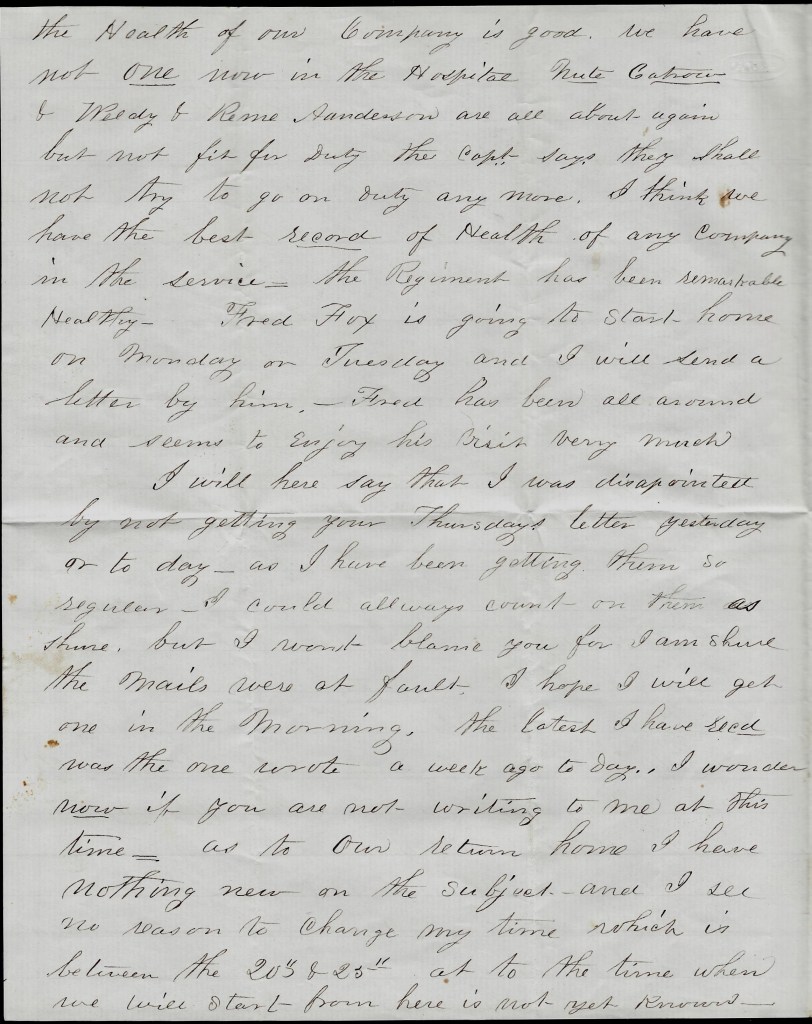 the Health of our Company is good. we have
not one now in the Hospital Nute Catrow
& Weedy & Reme Aanderson are all about again
but not fit for Duty the Capt. says they shall
not try to go on Duty any more. I think we
have the best record of Health of any Company
in the service – the Regiment has been remarkable
Healthy – Fred Fox is going to start home
on Monday or Tuesday and I will send a
letter by him, – Fred has been all around
and seems to Enjoy his visit very much
I will here say that I was disapointed
by not getting your Thursdays letter yesterday
or to day – as I have been getting them so
regular – I could allways count on them as
shure. but I wont blame you for I am shure
the Mails were at fault. I hope I will get
one in the Morning. the latest I have recd
was the one wrote a week ago to Day., I wonder
now if you are not writing to me at this
time – as to Our return home I have
nothing new on the subject – and I see
no reason to Change my time which is
between the 20th & 25th at to the time when
we will start from here is not yet Known –